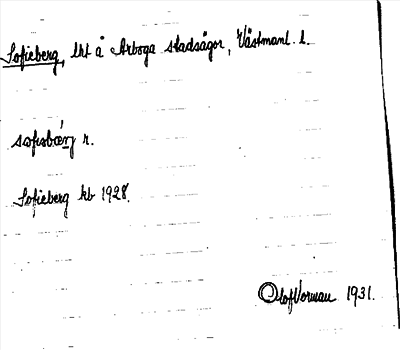 Sofieberg, lht å Arboga stadsägor, Västmanl. l.
sofisbærj r.
Sofieberg kb 1928.
Olof Vorman 1931.